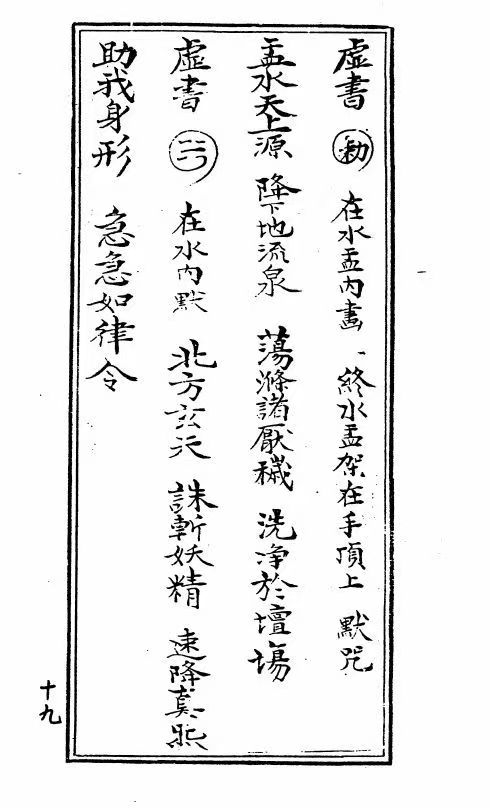 虛書 勅 在水盂內畫 終水盂架在手頂上 默咒
盂水天上源 降下地流泉 蕩滌諸厭穢 洗净於壇塲
虛書 在水內默 北方玄天 誅斬妖精 速降真炁
助我身形 急急如律令
十九